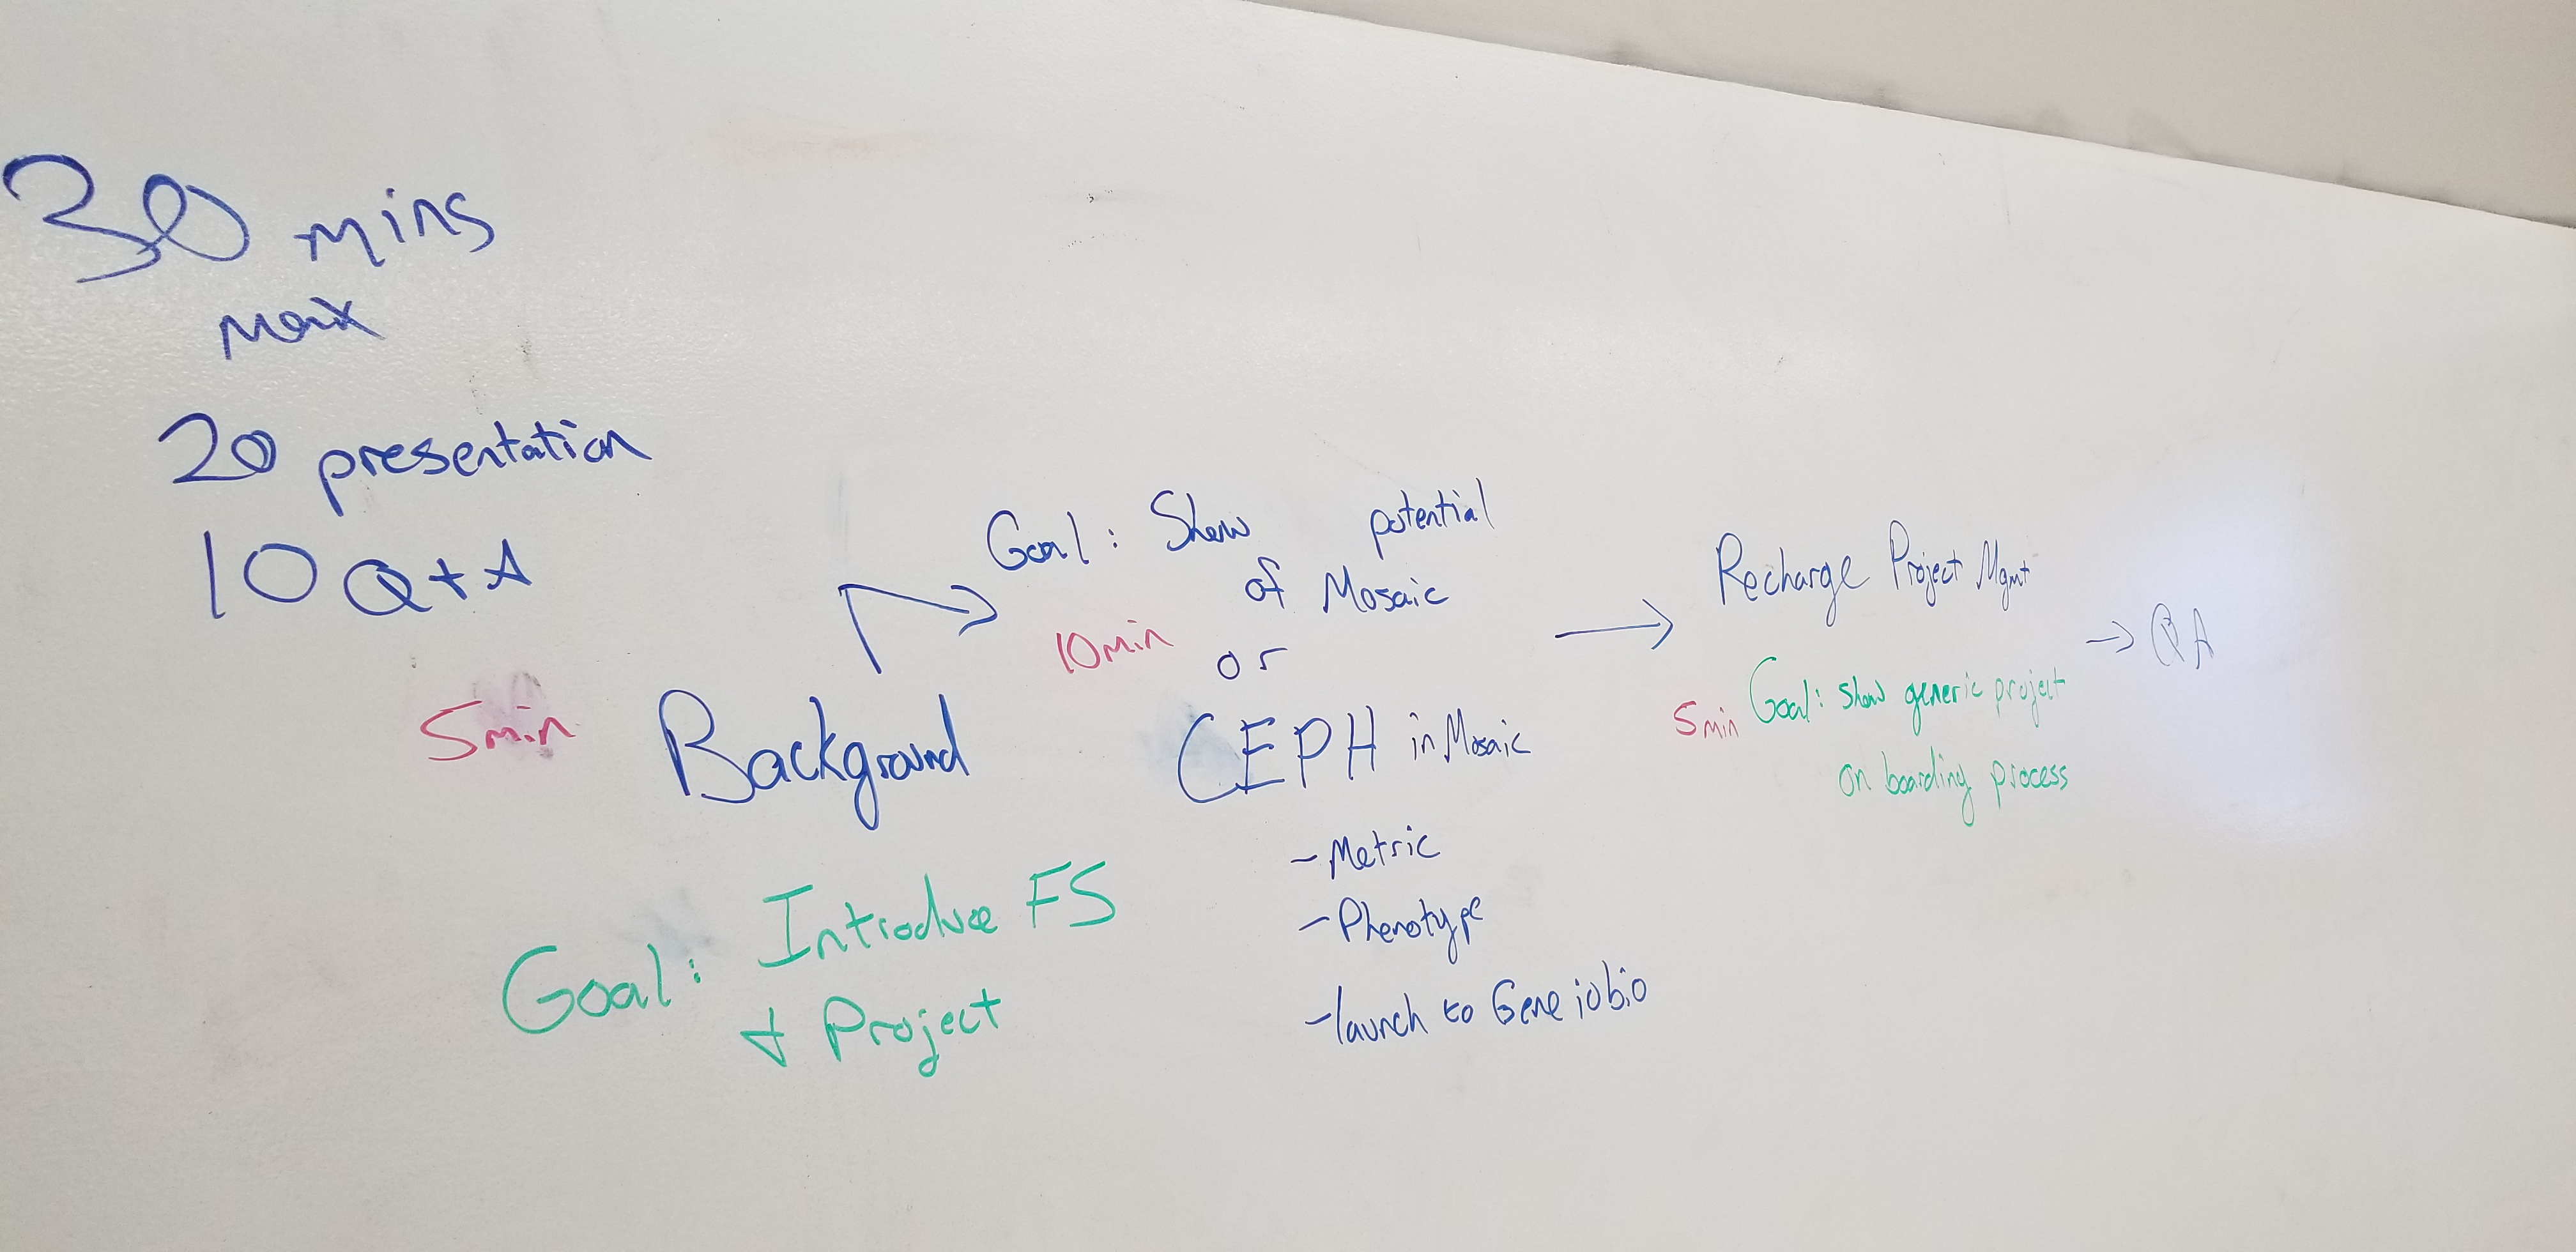 30 mins
max
20 presentation
10 Q + A
5min
Background
Goal: Introduce FS
+ Project
Goal: Show potential
of Mosaic
10min
or
CEPH in Mosaic
- Metric
- Phenotype
- launch to Gene iobio
Recharge Project Mgmt
5min
Goal: show generic project
on boarding process
QA